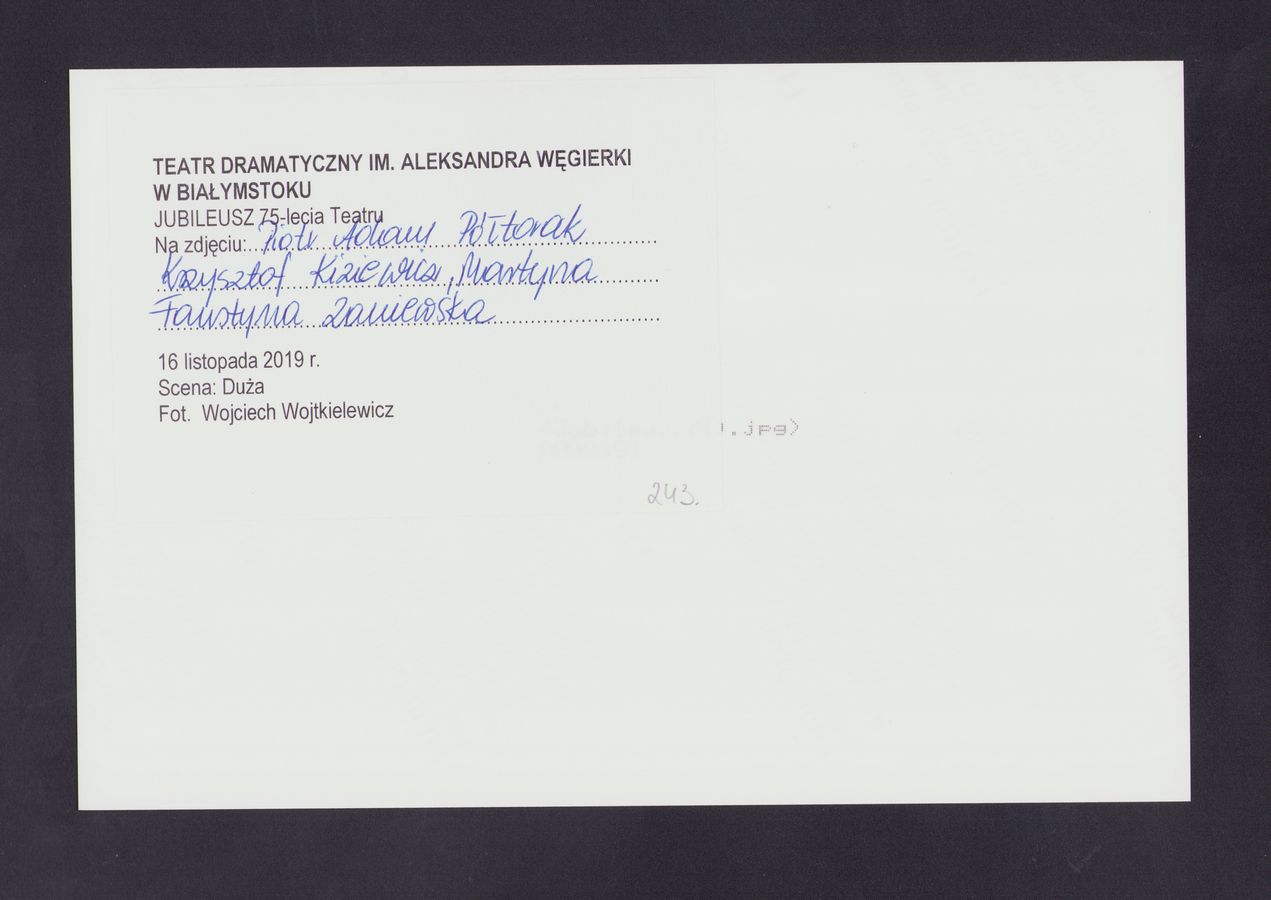 TEATR DRAMATYCZNY IM. ALEKSANDRA WĘGIERKI
W BIAŁYMSTOKU
JUBILEUSZ 75-lecia Teatru
Na zdjęciu: Piotr Adam Półtorak
Krzysztof Kiziewicz, Martyna
Faustyna Zaniewska
16 listopada 2019 r.
Scena: Duża
Fot. Wojciech Wojtkielewicz
.jpg)
243.